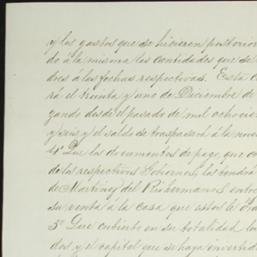 y los gastos que se hicieren posterior
do á la misma las cantidades que se
dres á las fechas respectivas. Esta c
rá el treinta y uno de Diciembre de
zando desde el pasado de mil ochocien
y seis y el saldo se traspasará á la nuev
4º Que los documentos de pago, que
de los respectivos Gobiernos, los tendrá
de Martinez del Rio hermanos entre
su venta á la casa que estos le
5º Que cubierto en su totalidad l
dos, y el capital que se haya invertid